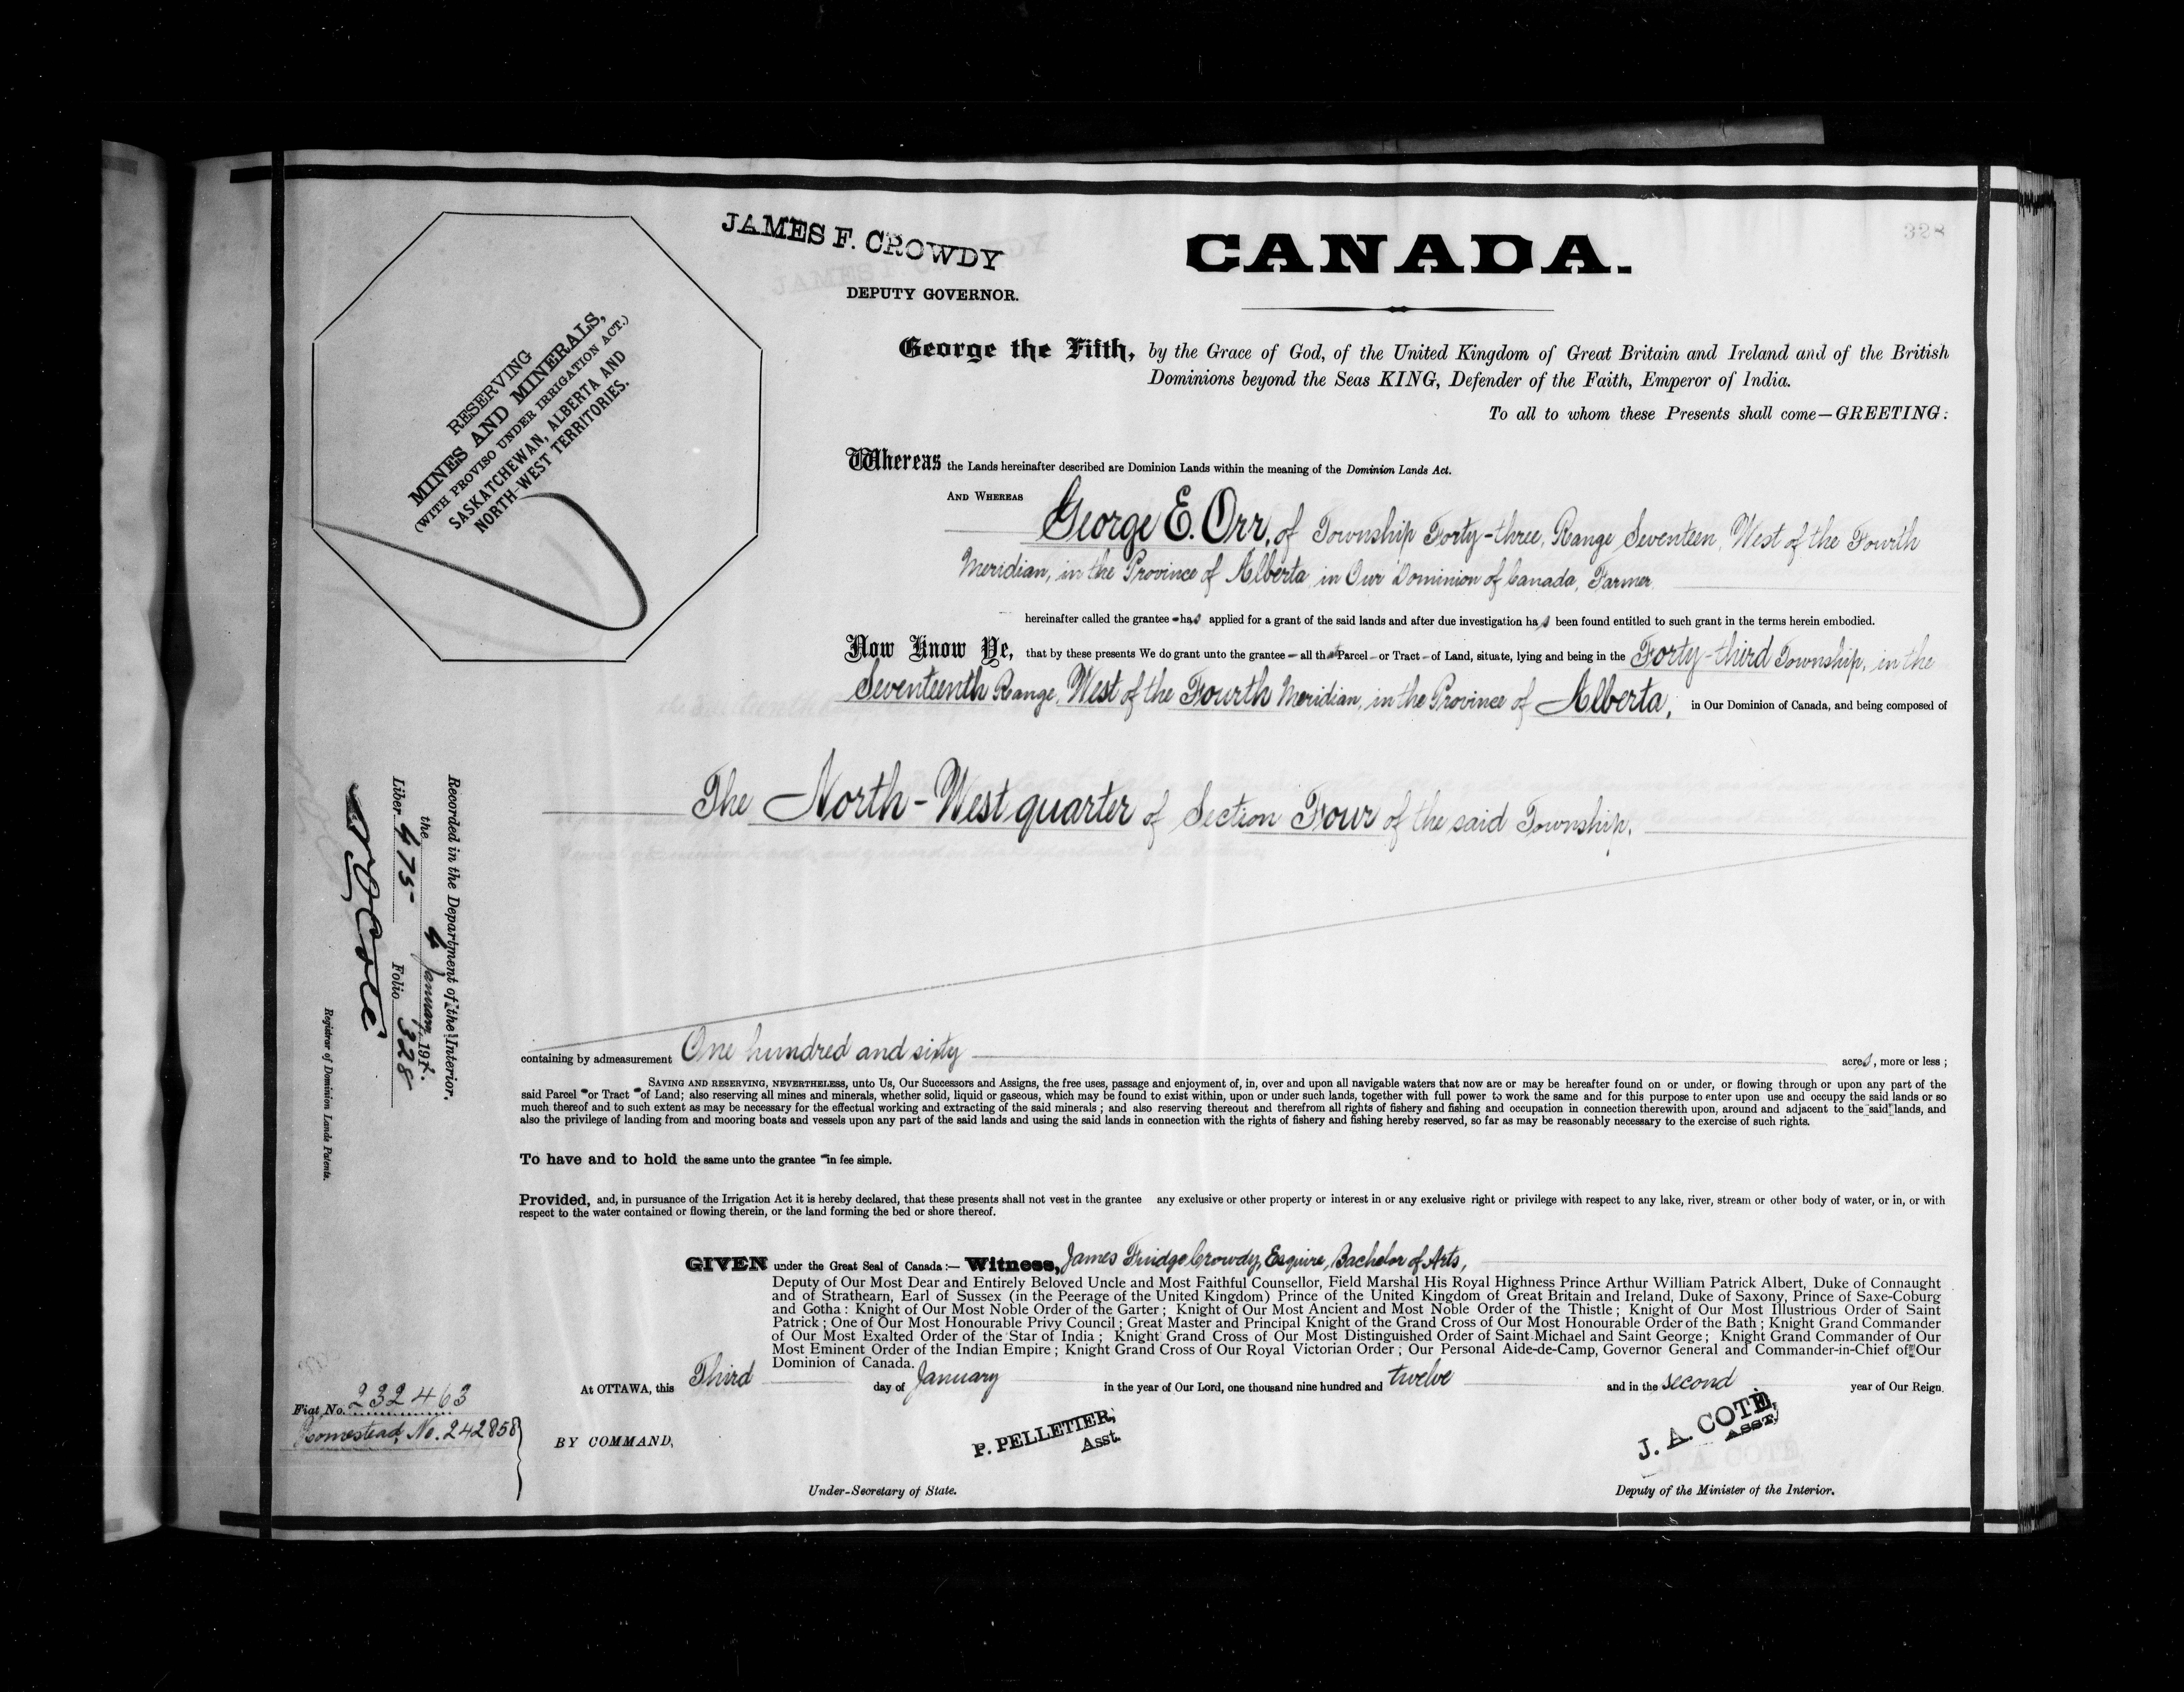 328
JAMES F. CROWDY
DEPUTY GOVERNOR.
CANADA.
RESERVING
MINES AND MINERALS,
(WITH PROVISO UNDER IRRIGATION ACT.)
SASKATCHEWAN, ALBERTA AND
NORTH-WEST TERRITORIES.
George the Fifth, by the Grace of God, of the United Kingdom of Great Britain and Ireland and of the British
Dominions beyond the Seas KING, Defender of the Faith, Emperor of India.
To all to whom these Presents shall come—GREETING:
Whereas the Lands hereinafter described are Dominion Lands within the meaning of the Dominion Lands Act.
AND WHEREAS George E. Orr, of Township Forty-three, Range Seventeen, West of the Fourth
Meridian, in the Province of Alberta in Our Dominion of Canada, Farmer
hereinafter called the grantee has applied for a grant of the said lands and after due investigation has been found entitled to such grant in the terms herein embodied.
Now Know Ye, that by these presents We do grant unto the grantee all that Parcel or Tract of Land, situate, lying and being in the Forty-third Township, in the
Seventeenth Range, West of the Fourth Meridian, in the Province of Alberta, in Our Dominion of Canada, and being composed of
The North-West quarter of Section Four of the said Township.
containing by admeasurement One hundred and sixty acres, more or less;
SAVING AND RESERVING, NEVERTHELESS, unto Us, Our Successors and Assigns, the free uses, passage and enjoyment of, in, over and upon all navigable waters that now are or may be hereafter found on or under, or flowing through or upon any part of the
said Parcel or Tract of Land; also reserving all mines and minerals, whether solid, liquid or gaseous, which may be found to exist within, upon or under such lands, together with full power to work the same and for this purpose to enter upon use and occupy the said lands or so
much thereof and to such extent as may be necessary for the effectual working and extracting of the said minerals; and also reserving thereout and therefrom all rights of fishery and fishing and occupation in connection therewith upon, around and adjacent to the said lands, and
also the privilege of landing from and mooring boats and vessels upon any part of the said lands and using the said lands in connection with the rights of fishery and fishing hereby reserved, so far as may be reasonably necessary to the exercise of such rights.
To have and to hold the same unto the grantee in fee simple.
Provided, and, in pursuance of the Irrigation Act it is hereby declared, that these presents shall not vest in the grantee any exclusive or other property or interest in or any exclusive right or privilege with respect to any lake, river, stream or other body of water, or in, or with
respect to the water contained or flowing therein, or the land forming the bed or shore thereof.
GIVEN under the Great Seal of Canada:— Witness, James Fuidge Crowdy, Esquire, Bachelor of Arts,
Deputy of Our Most Dear and Entirely Beloved Uncle and Most Faithful Counsellor, Field Marshal His Royal Highness Prince Arthur William Patrick Albert, Duke of Connaught
and of Strathearn, Earl of Sussex (in the Peerage of the United Kingdom) Prince of the United Kingdom of Great Britain and Ireland, Duke of Saxony, Prince of Saxe-Coburg
and Gotha: Knight of Our Most Noble Order of the Garter; Knight of Our Most Ancient and Most Noble Order of the Thistle; Knight of Our Most Illustrious Order of Saint
Patrick; One of Our Most Honourable Privy Council; Great Master and Principal Knight of the Grand Cross of Our Most Honourable Order of the Bath; Knight Grand Commander
of Our Most Exalted Order of the Star of India; Knight Grand Cross of Our Most Distinguished Order of Saint Michael and Saint George; Knight Grand Commander of Our
Most Eminent Order of the Indian Empire; Knight Grand Cross of Our Royal Victorian Order; Our Personal Aide-de-Camp, Governor General and Commander-in-Chief of Our
Dominion of Canada.
At OTTAWA, this Third day of January in the year of Our Lord, one thousand nine hundred and twelve and in the second year of Our Reign.
BY COMMAND,
P. PELLETIER,
Asst.
Under-Secretary of State.
J. A. COTE,
ASST,
Deputy of the Minister of the Interior.
Recorded in the Department of the Interior.
the 4 January 1912.
Liber 475 Folio 328
Registrar of Dominion Lands Patents.
Fiat No. 232463
Homestead, No. 242858